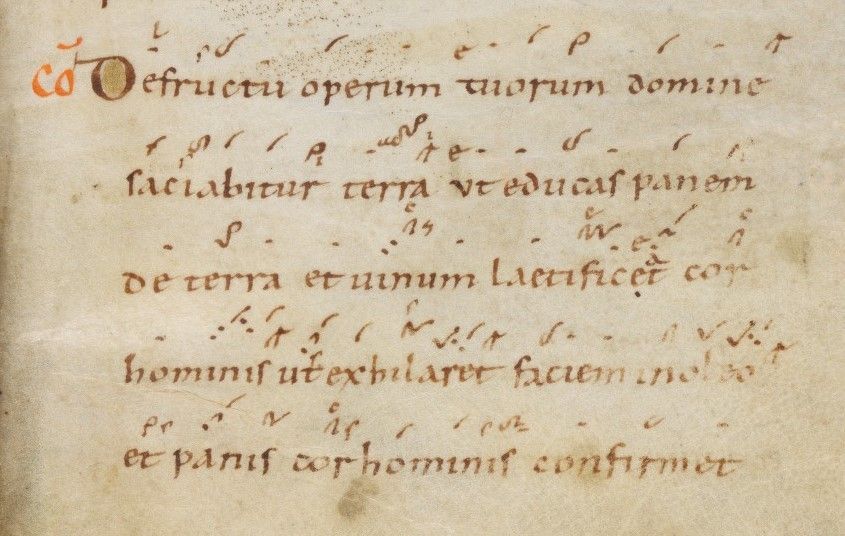 Cō De fructu operum tuorum domine
saciabitur terra ut educas panem
de terra et uinum laetificet cor
hominis ut exhilaret faciem in oleo
et panis cor hominis confirmet